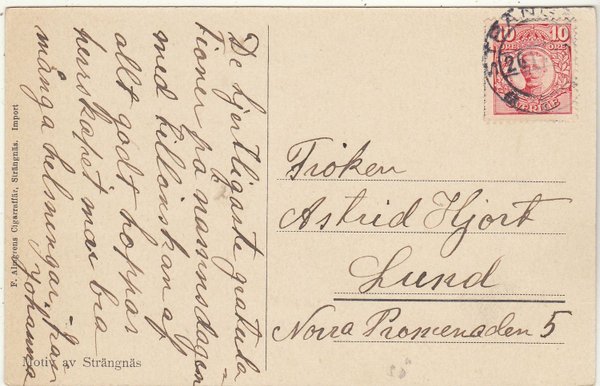 De hjertligaste gratula
tioner på namnsdagen
med tillönskan af
allt godt hoppas
herrskapet mår bra
många helsningar från
Johanna
Fröken
Astrid Hjort
Lund
Norra Promenaden 5
10
ÖRE ÖRE
SVERIGE
Motiv av Strängnäs
Cigarraffär, Strängnäs. Import